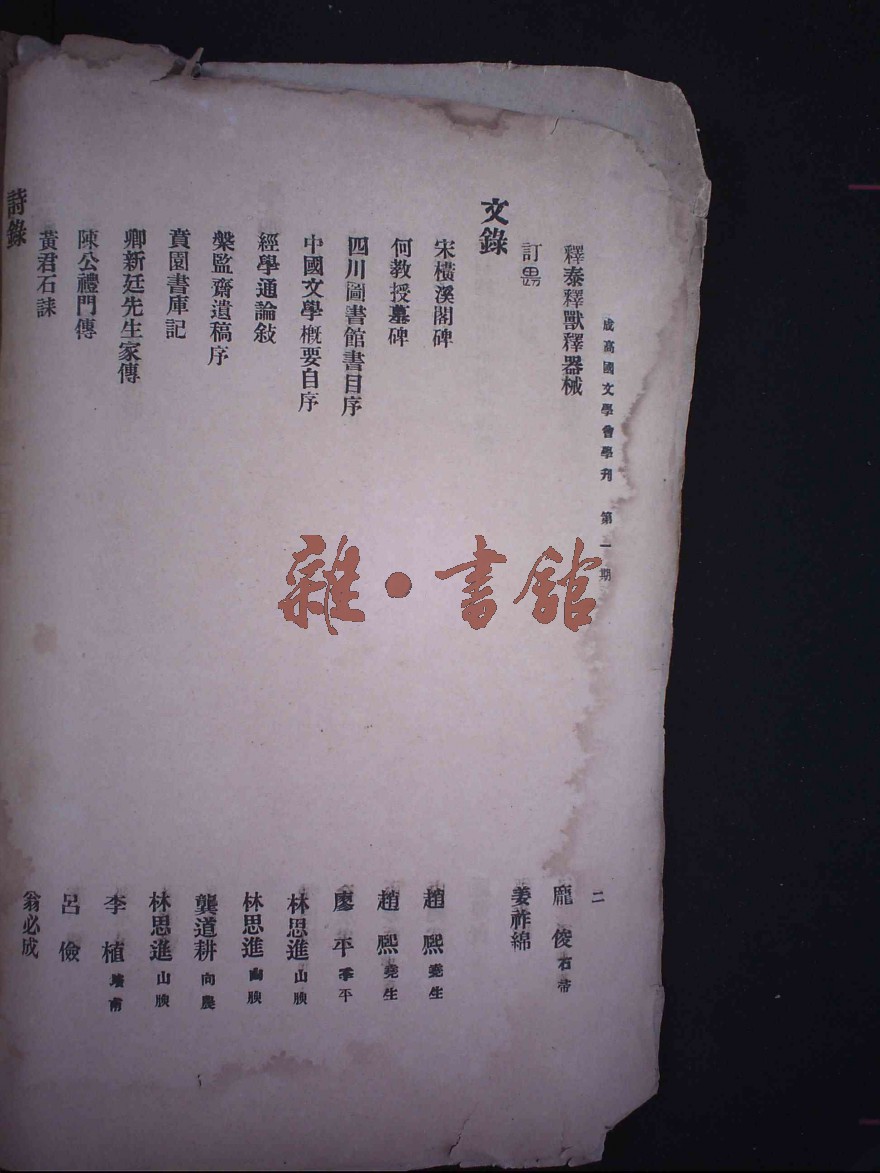 成高國文學會學刊 第一期 二
釋泰釋獸釋器械 龐俊 石帚
訂 姜祚綿
文錄
宋橫溪閣碑 趙熙 堯生
何教授墓碑 趙熙 堯生
四川圖書館書目序 廖平 季平
中國文學概要自序 林思進 山腴
經學通論敍 林思進 山腴
槃監齋遺稿序 龔道耕 向農
賁園書庫記 林思進 山腴
卿新廷先生家傳 李植 培甫
陳公禮門傳 呂儉
黃君石誄 翁必成
詩錄
雜·書館